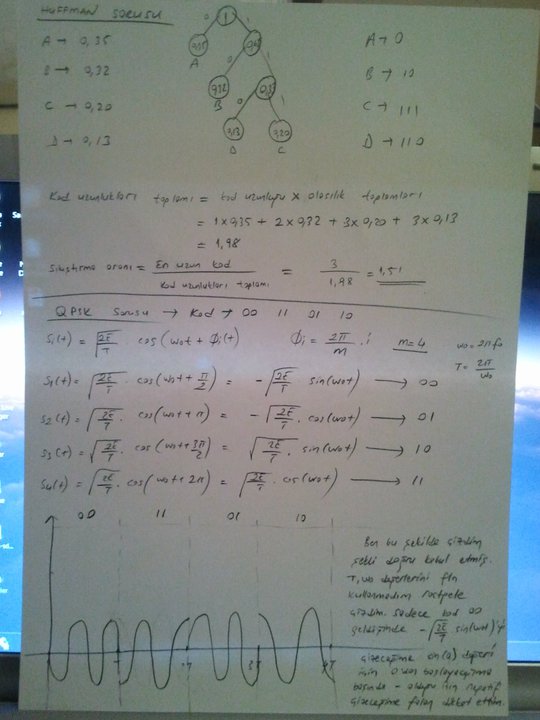 HUFFMAN SORUSU
A → 0,35
B → 0,32
C → 0,20
D → 0,13
0 1
A
0
0,32
B 0 1
0,13 0,20
D C
A → 0
B → 10
C → 111
D → 110
Kod uzunlukları toplamı = kod uzunluğu x olasılık toplamları
= 1x0,35 + 2x0,32 + 3x0,20 + 3x0,13
= 1,98
Sıkıştırma oranı = En uzun kod / Kod uzunlukları toplamı = 3 / 1,98 = 1,51
QPSK Sorusu → Kod → 00 11 01 10
Si(t) = √2E/T cos(w0t + Φi(t)) Φi = 2π/m . i m=4 w0 = 2πf0
T = 2π/w0
S1(t) = √2E/T . cos(w0t + π/2) = -√2E/T sin(w0t) → 00
S2(t) = √2E/T . cos(w0t + π) = -√2E/T . cos(w0t) → 01
S3(t) = √2E/T . cos(w0t + 3π/2) = √2E/T . sin(w0t) → 10
S4(t) = √2E/T . cos(w0t + 2π) = √2E/T . cos(w0t) → 11
00 11 01 10
T 2T 3T 4T
Ben bu şekilde çizdim
şekli doğru kabul etmiş.
T, w0 değerlerini fln
kullanmadım rastgele
çizdim. sadece kod 00
geldiğinde -√2E/T sin(w0t)'yi
çizeceğime sin(0) değeri
için 0'dan başlayacağıma
başında - olduğu için negatif
çizeceğime falan dikkat ettim.